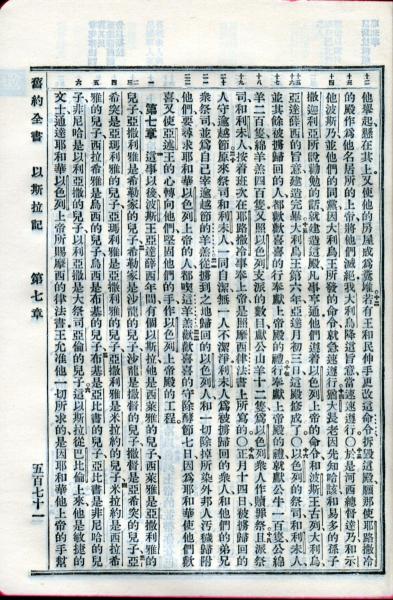 他舉起懸在其上又使他的房屋成爲糞堆若有王和民伸手更改這命令拆毀這殿願那使耶路撒冷
的殿作爲他名居所的上帝將他們滅絕我大利烏降這旨意當速速遵行〇於是河西總督達乃和示
他波斯乃並他們的同黨因大利烏王所發的命令就急速遵行猶大長老因先知哈該和易多的孫子
撒迦利亞所說勸勉的話就建造這殿凡事亨通他們遵着以色列上帝的命令和波斯王古列大利烏
亞達薛西的旨意建造完畢大利烏王第六年亞達月初三日這殿修成了〇以色列的祭司和利未人
並其餘被擄歸回的人都歡歡喜喜的行奉獻上帝殿的禮行奉獻上帝殿的禮就獻公牛一百隻公綿
羊二百隻綿羊羔四百隻又照以色列支派的數目獻公山羊十二隻爲以色列衆人作贖罪祭且派祭
司和利未人按着班次在耶路撒冷事奉上帝是照摩西律法書上所寫的〇正月十四日被擄歸回的
人守逾越節原來祭司和利未人一同自潔無一人不潔淨利未人爲被擄歸回的衆人和他們的弟兄
衆祭司並爲自己宰逾越節的羊羔從擄到之地歸回的以色列人和一切除掉所染外邦人汚穢歸附
他們要尋求耶和華以色列上帝的人都喫這羊羔歡歡喜喜的守除酵節七日因爲耶和華使他們歡
喜又使亞述王的心轉向他們堅固他們的手作以色列上帝殿的工程。
第七章
這事以後波斯王亞達薛西年間有個以斯拉他是西萊雅的兒子西萊雅是亞撒利雅的
兒子亞撒利雅是希勒家的兒子希勒家是沙龍的兒子沙龍是撒督的兒子撒督是亞希突的兒子亞
希突是亞瑪利雅的兒子亞瑪利雅是亞撒利雅的兒子亞撒利雅是米拉約的兒子米拉約是西拉希
雅的兒子西拉希雅是烏西的兒子烏西是布基的兒子布基是亞比書的兒子亞比書是非尼哈的兒
子非尼哈是以利亞撒的兒子以利亞撒是大祭司亞倫的兒子這以斯拉從巴比倫上來他是敏捷的
文士通達耶和華以色列上帝所賜摩西的律法書王允准他一切所求的是因耶和華他上帝的手幫
舊約全書 以斯拉記 第七章 五百七十一